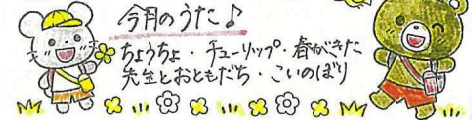 今月のうた♪
ちょうちょ・チューリップ・春がきた
先生とおともだち・こいのぼり